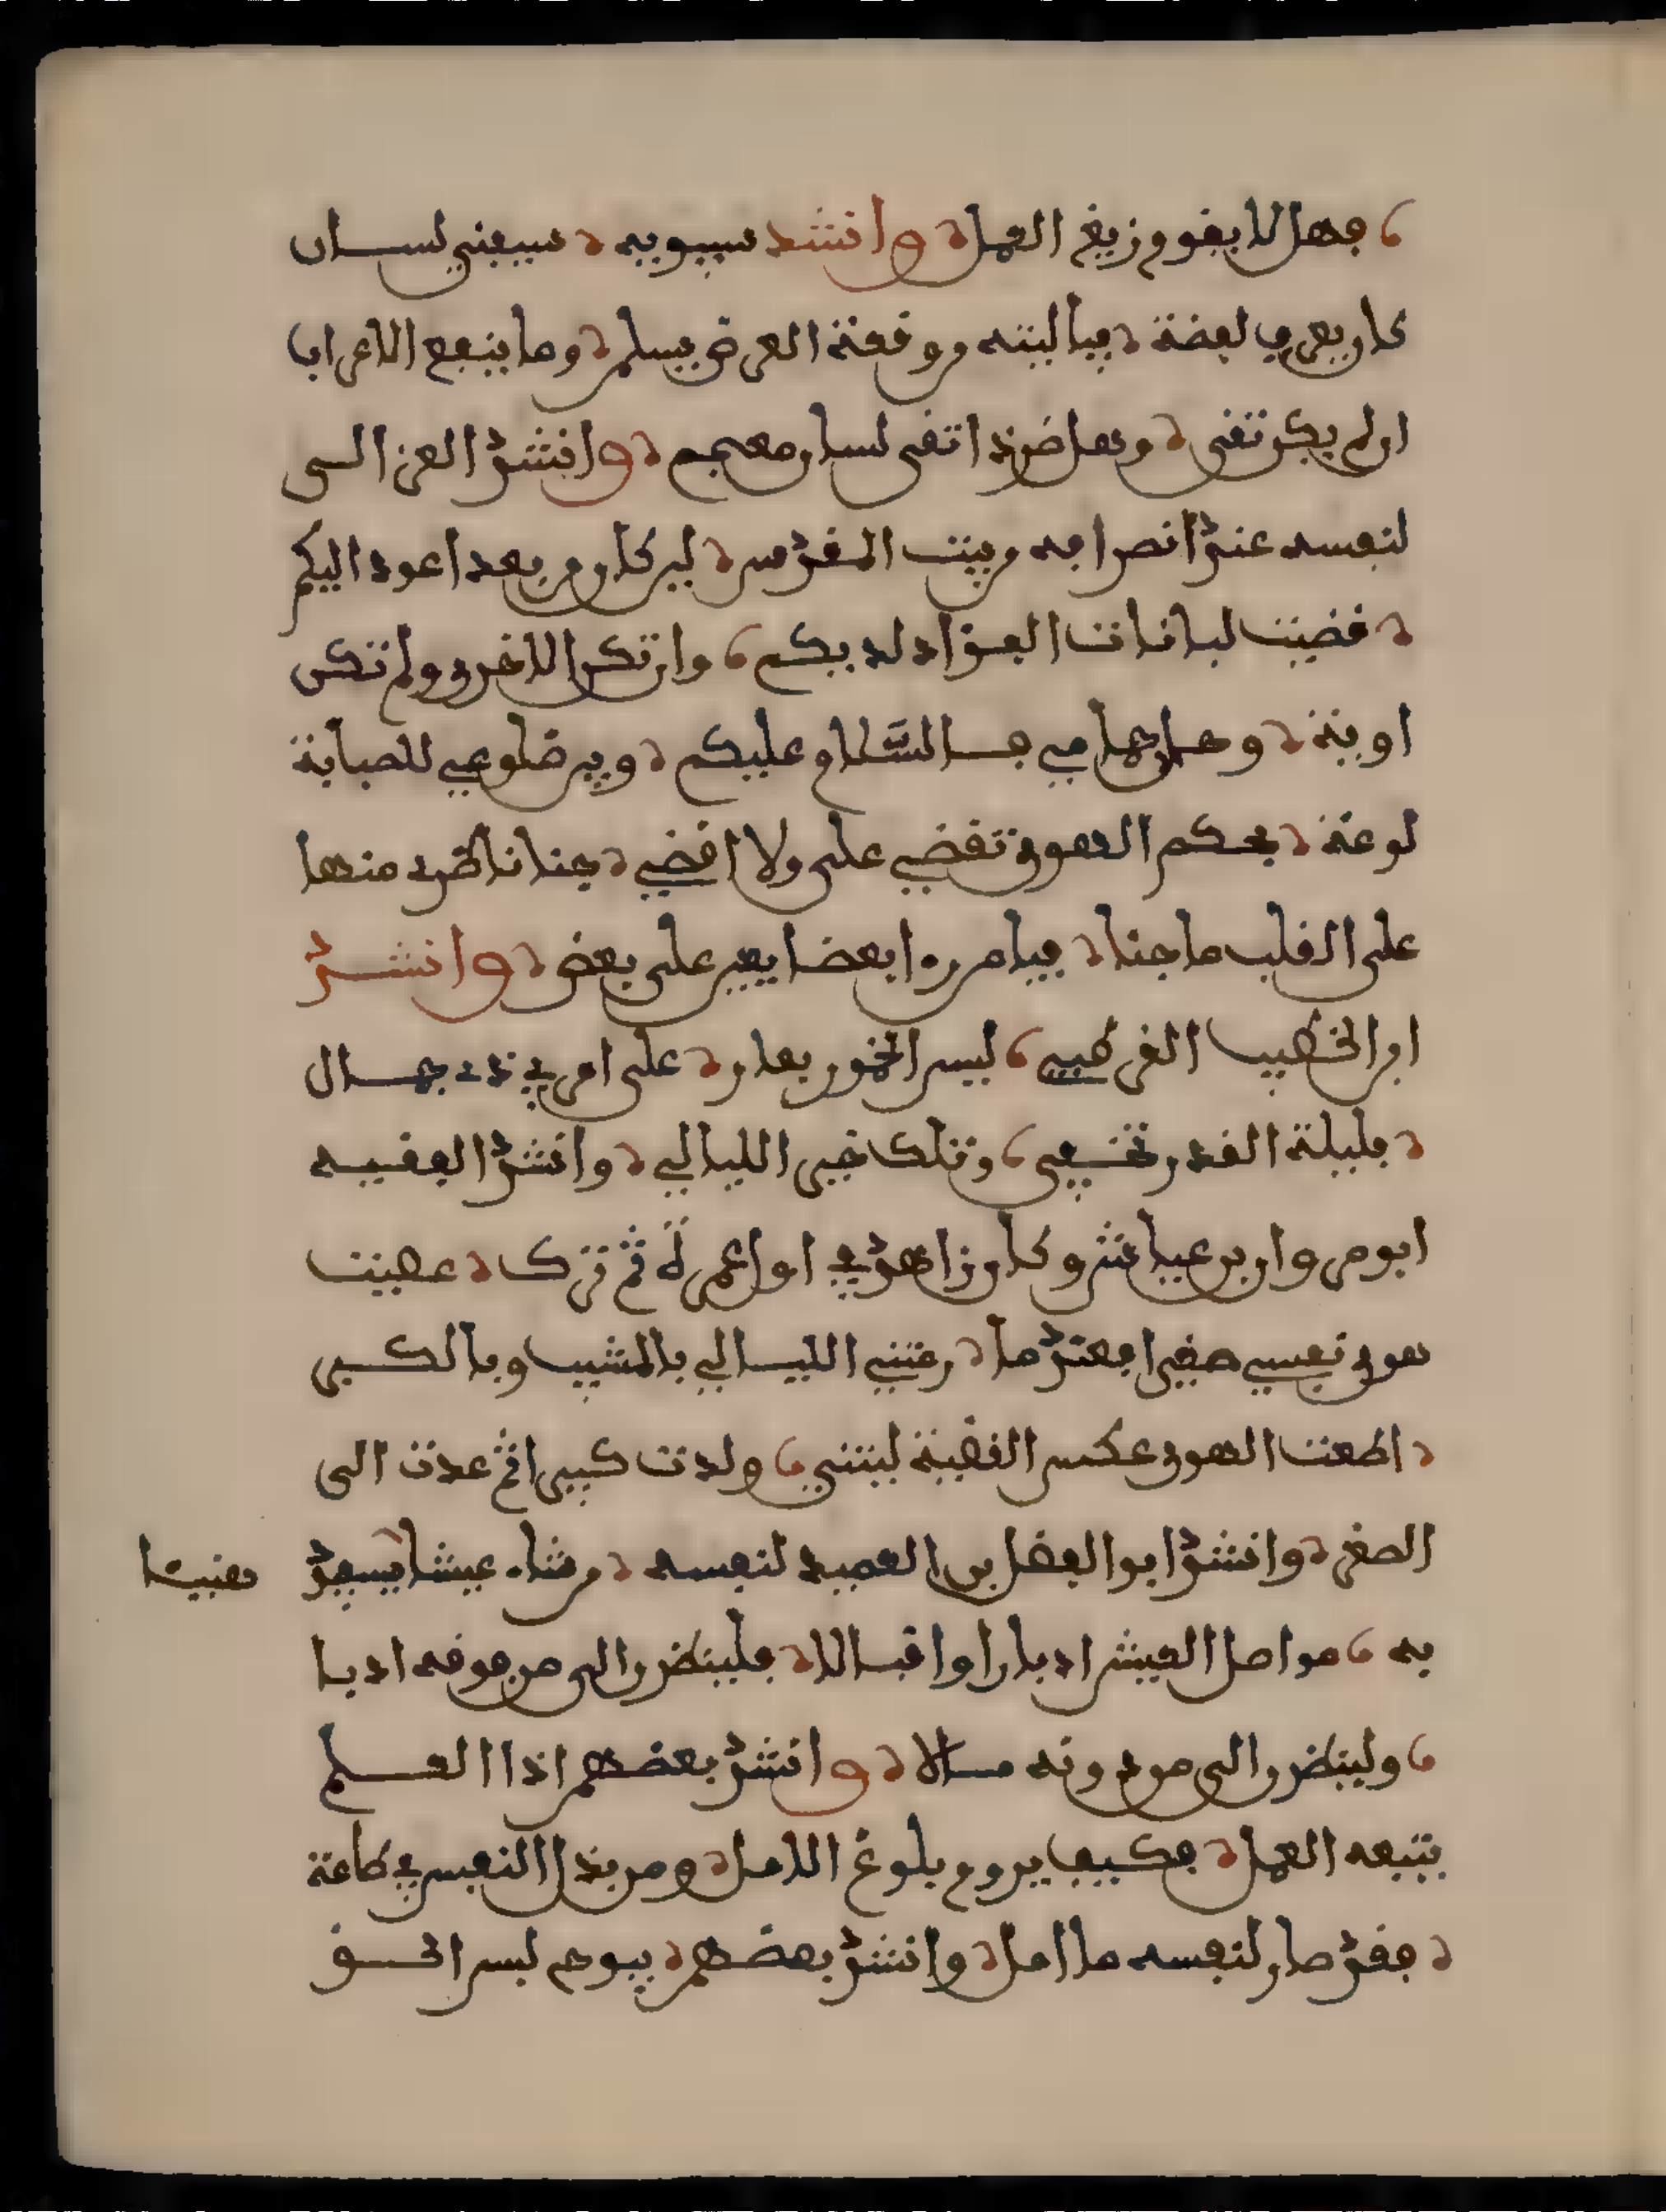 فهل لا يقوم زيغ العمل وانشد سيبويه سيبقى لسان
كان يعرب لفظه فيا ليته من وقفة العرض يسلم وما ينفع الاعراب
ان لم يكن تقى وما ضر ذا تقى لسان معجم وانشد العز السى
لنفسه عند انصرافه من بيت المقدس لين كان من بعد اعود اليكم
قضيت لبانات الفؤاد لديكم وان تكن الاخرى ولم تكن
اوبة وحان حمامي فالسلام عليكم وبين ضلوعي للصبابة
لوعة بحكم الهوى تقضي على ولا اقضي جنا ناظرى منها
على القلب ما جنا فيا من را بعضا يعين على بعض وانشد
ابن الخطيب القرطبي ليس الخمول بعار على امرئ ذى جمال
فليلة القدر تخفى وتلك خير الليالي وانشد الفقيه
ابو مروان بن عياش وكان زاهدا في اول عمره ثم ترك عصيت
هوى نفسي صغيرا فعندما رمتني الليالي بالمشيب وبالكبر
اطعت الهوى عكس القضية ليتني ولدت كبيرا ثم عدت الى
الصغر وانشد ابو الفضل بن العميد لنفسه من شاء عيشا يسعد
هنيئا
به مواصل العيش ادبارا واقبالا فلينظرن الى من فوقه ادبا
ولينظرن الى من دونه مالا وانشد بعضهم اذا العلم
يتبعه العمل فكيف يروم بلوغ الامل ومن بذل النفس في طاعة
فقد صار لنفسه ما امل وانشد بعضهم بيوم لبس الخف